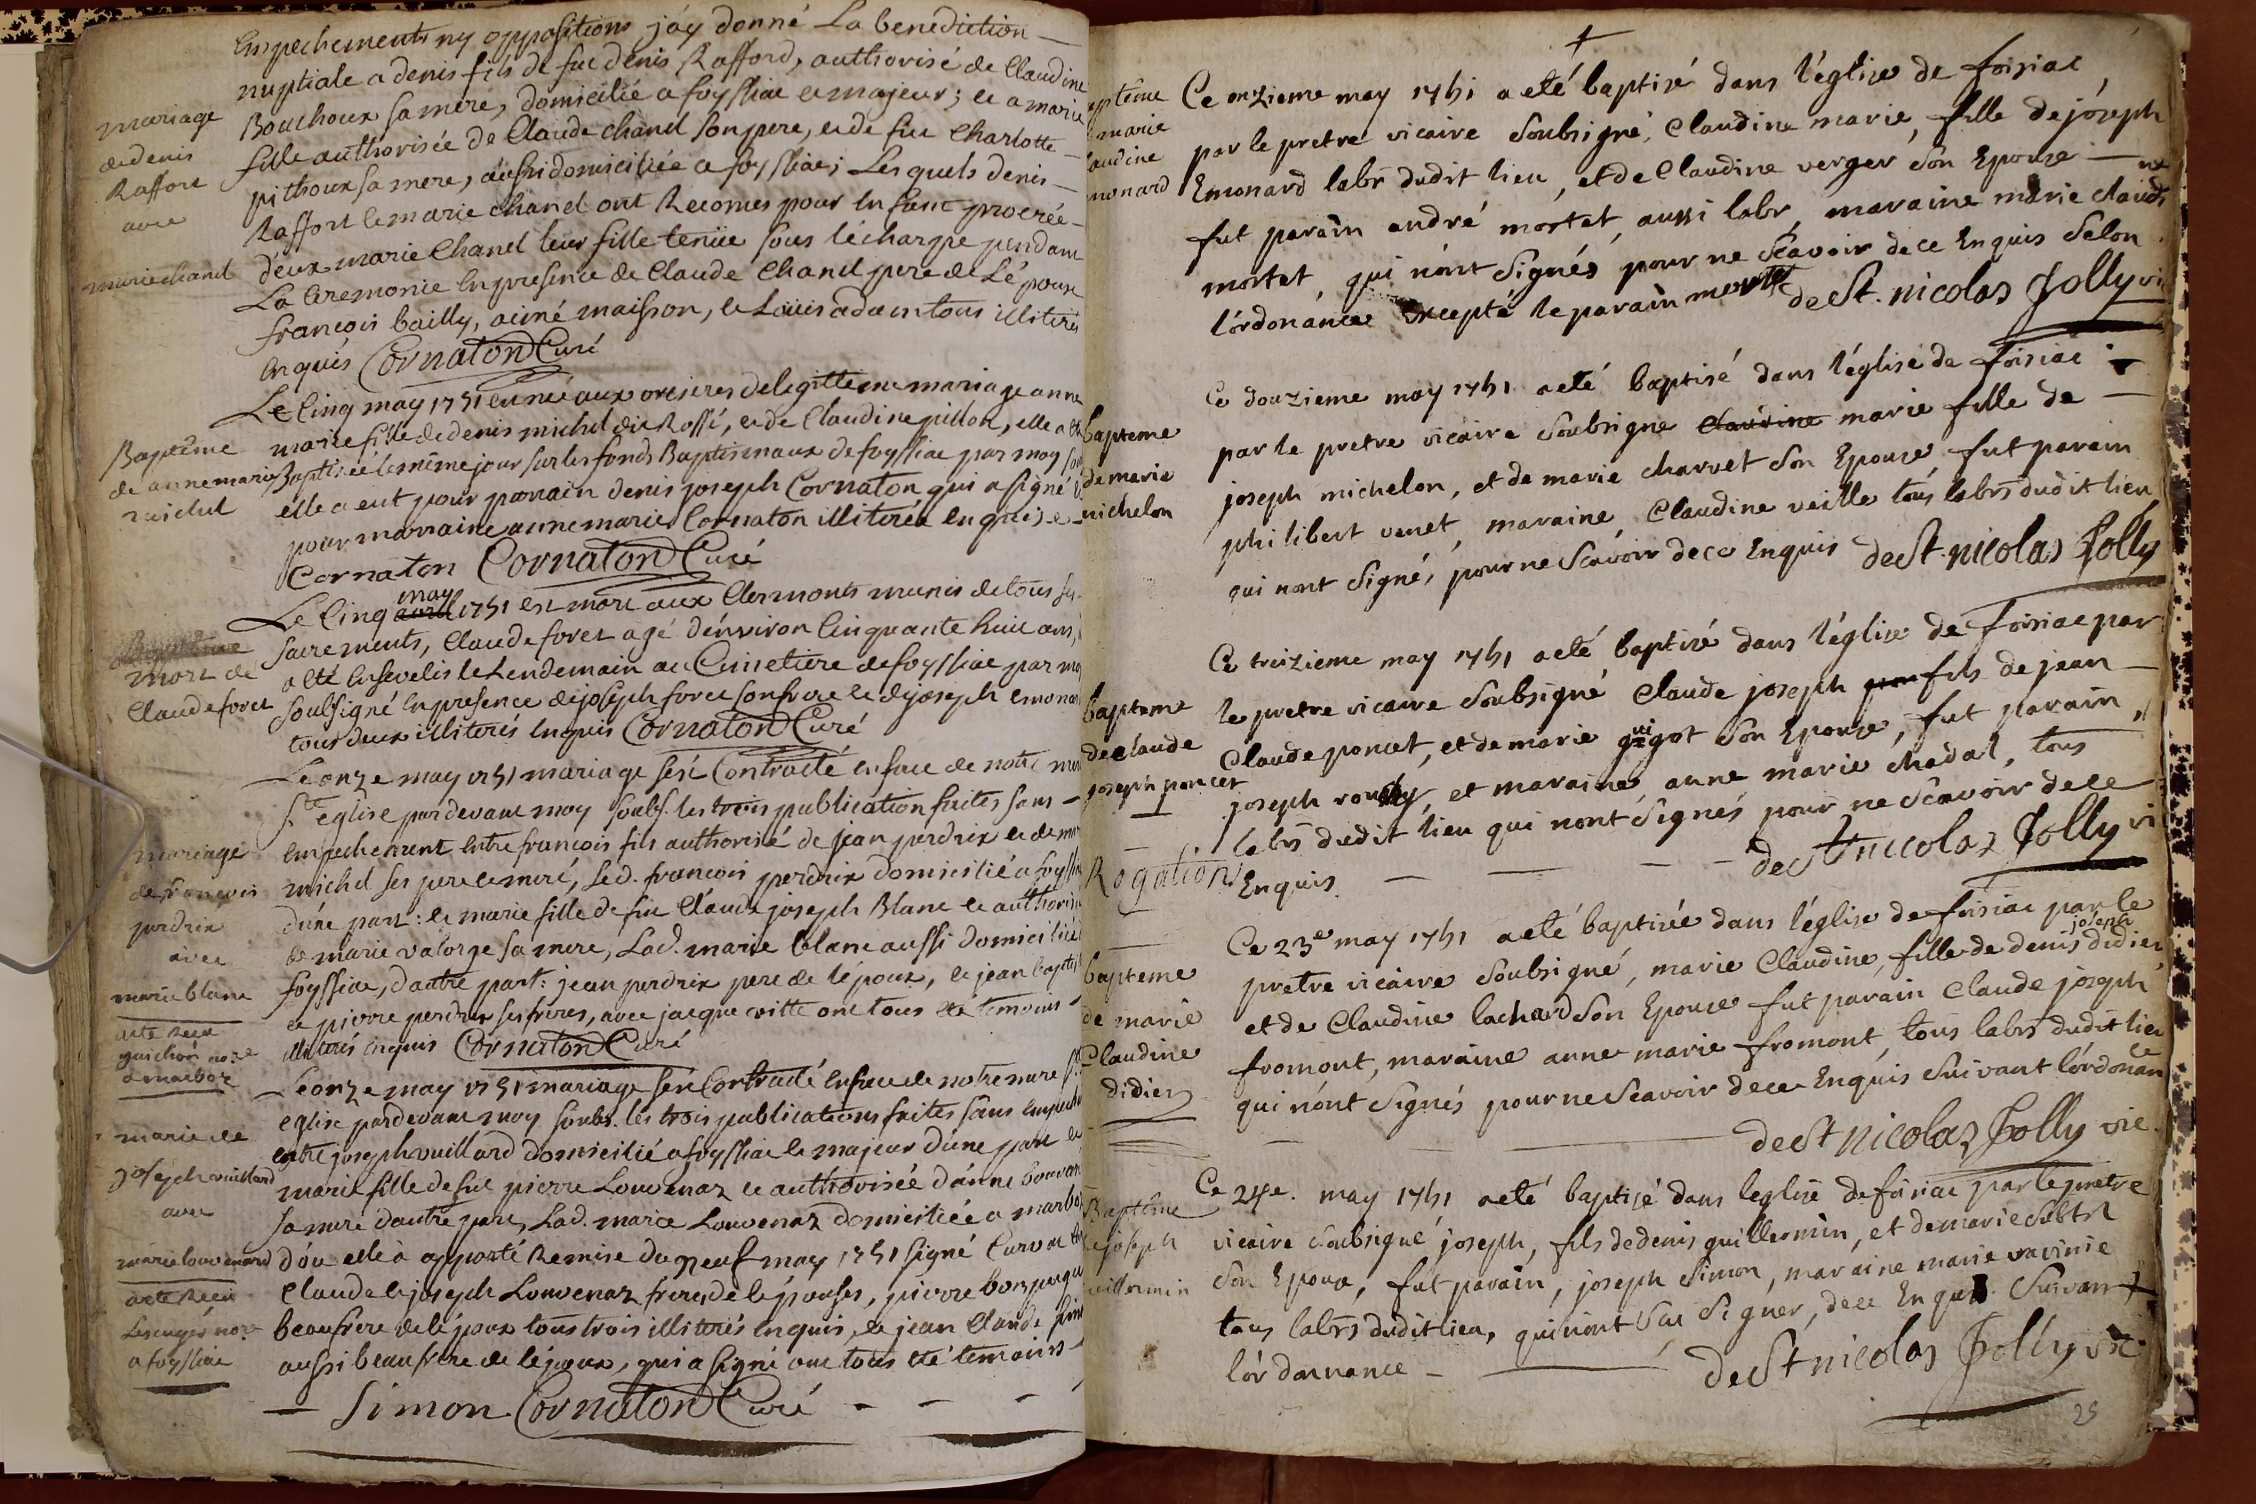 Empechements ny oppositions j'ay donné La benediction
nuptiale a denis fils de fue denis Rafford, authorisé de Claudine
Bouchoux sa mere, domicilié a foyssiac et majeur; et a marie
fille authorisée de Claude chanel son pere, et de fue Charlotte
pithoux sa mere, aussi domiciliée a foyssiac; Lesquels denis
Raffort et marie chanel ont Reconnu pour Enfant procrée
d'eux marie Chanel leur fille tenüe sous l'écharpe pendant
La Ceremonie En presence de Claude Chanel pere de L'épouse
francois bailly, aimé maisson, et Louis adam tous illiterés
Enquis Cornaton Curé
mariage
de denis
Raffort
avec
marie chanel
Le Cinq may 1751 est née aux oresieres de legittime mariage anne
marie fille de denis michel dit Rossé, et de Claudine pillon, elle a eté
Baptisée le même jour sur les fonds Baptismaux de foyssiac par moy sous
elle a eut pour parrain denis joseph Cornaton qui a signé et
pour marraine anne marie Cornaton illiterée Enquise
Cornaton Cornaton Curé
Baptême
de anne marie
michel
Le Cinq avril may 1751 est mort aux Clermonts munis de tous ses
sacrements, Claude foret agé d'environ Cinquante huit ans,
a eté Ensevelis le Lendemain au Cimetiere de foyssiac par moy
soubsigné En presence de joseph foret son frere et de joseph emonard
tous deux illiterés Enquis Cornaton Curé
mort de
Claude foret
Le onze may 1751 mariage s'est Contracté en face de notre mere
Ste eglise pardevant moy soubs. les trois publication faites sans
empechement entre francois fils authorisé de jean perdrix et de marie
michel ses pere et mere, Led. francois perdrix domicilié a foyssiac
d'une part: et marie fille de fue Claude joseph Blanc et authorisée
de marie valorge sa mere, Lad. marie blanc aussi domiciliée
foyssiac, d'autre part: jean perdrix pere de l'époux, et jean baptiste
et pierre perdrix ses freres, avec jacque vitte ont tous eté temoins
illiterés Enquis Cornaton Curé
mariage
de francois
perdrix
avec
marie blanc
acte Receu
guichon no.re
a marboz
Le onze may 1751 mariage s'est Contracté En face de notre mere Ste
eglise pardevant moy soubs. les trois publications faites sans empeche
entre joseph vuillard domicilié a foyssiac et majeur d'une part et
marie fille de fue pierre Louvenaz et authorisée d'anne bouvard
sa mere d'autre part, Lad. marie Louvenaz domiciliée a marboz
d'ou elle a apporté Remise du neuf may 1751 signé
Claude et joseph Louvenaz freres de l'épouse, pierre bonpaque
beaufrere de l'époux tous trois illiterés Enquis, et jean Claude
aussi beaufrere de l'époux, qui a signé ont tous eté temoins
Simon Cornaton Curé
marie de
joseph vuillard
avec
marie louvenard
acte Receu
no.re
a foyssiac
Ce onzieme may 1751 a eté baptisé dans l'église de foisiac
par le pretre vicaire soubsigné, Claudine marie, fille de joseph
Emonard labr dudit lieu, et de Claudine verger son Epouse
fut parain andré mortet, aussi labr, maraine marie claude
mortet, qui n'ont signés pour ne scavoir de ce Enquis selon
l'ordonance Excepté le parain mortet
de St. nicolas Jolly vic
baptême
marie
claudine
Emonard
Ce douzieme may 1751 a eté baptisé dans l'église de foisiac
par le pretre vicaire soubsigne Claudine marie fille de
joseph michelon, et de marie charvet son Epouse fut parain
philibert venet, maraine Claudine veille tous labrs dudit lieu
qui n'ont signés, pour ne scavoir de ce Enquis de St. nicolas Jolly
bapteme
de marie
michelon
Ce treizieme may 1751 a eté baptisé dans l'église de foisiac par
le pretre vicaire soubsigné Claude joseph fils de jean
Claude poncet, et de marie guigot son Epouse, fut parain
joseph, et maraine anne marie chadal, tous
labrs dudit lieu qui n'ont signés pour ne scavoir de ce
Enquis. de St nicolas Jolly vi
bapteme
de claude
joseph poncet
Rogations
Ce 23e may 1751 a eté baptisée dans l'église de foisiac par le
pretre vicaire soubsigné, marie Claudine, fille de denis joseph didier
et de Claudine lachard son Epouse fut parain Claude joseph
fromont, maraine anne marie fromont, tous labrs dudit lieu
qui n'ont signés pour ne scavoir de ce Enquis suivant l'ordonance
de St nicolas Jolly vic
bapteme
de marie
Claudine
didier
Ce 24e. may 1751 a eté baptisé dans l'eglise de foisiac par le pretre
vicaire soubsigné joseph, fils de denis guillermin, et de marie
son Epoux, fut parain, joseph simon, maraine marie
tous labrs dudit lieu, qui n'ont scu signer, de ce Enquis suivant
l'ordonnance
de St nicolas Jolly vic
Baptême
de joseph
guillermin
25